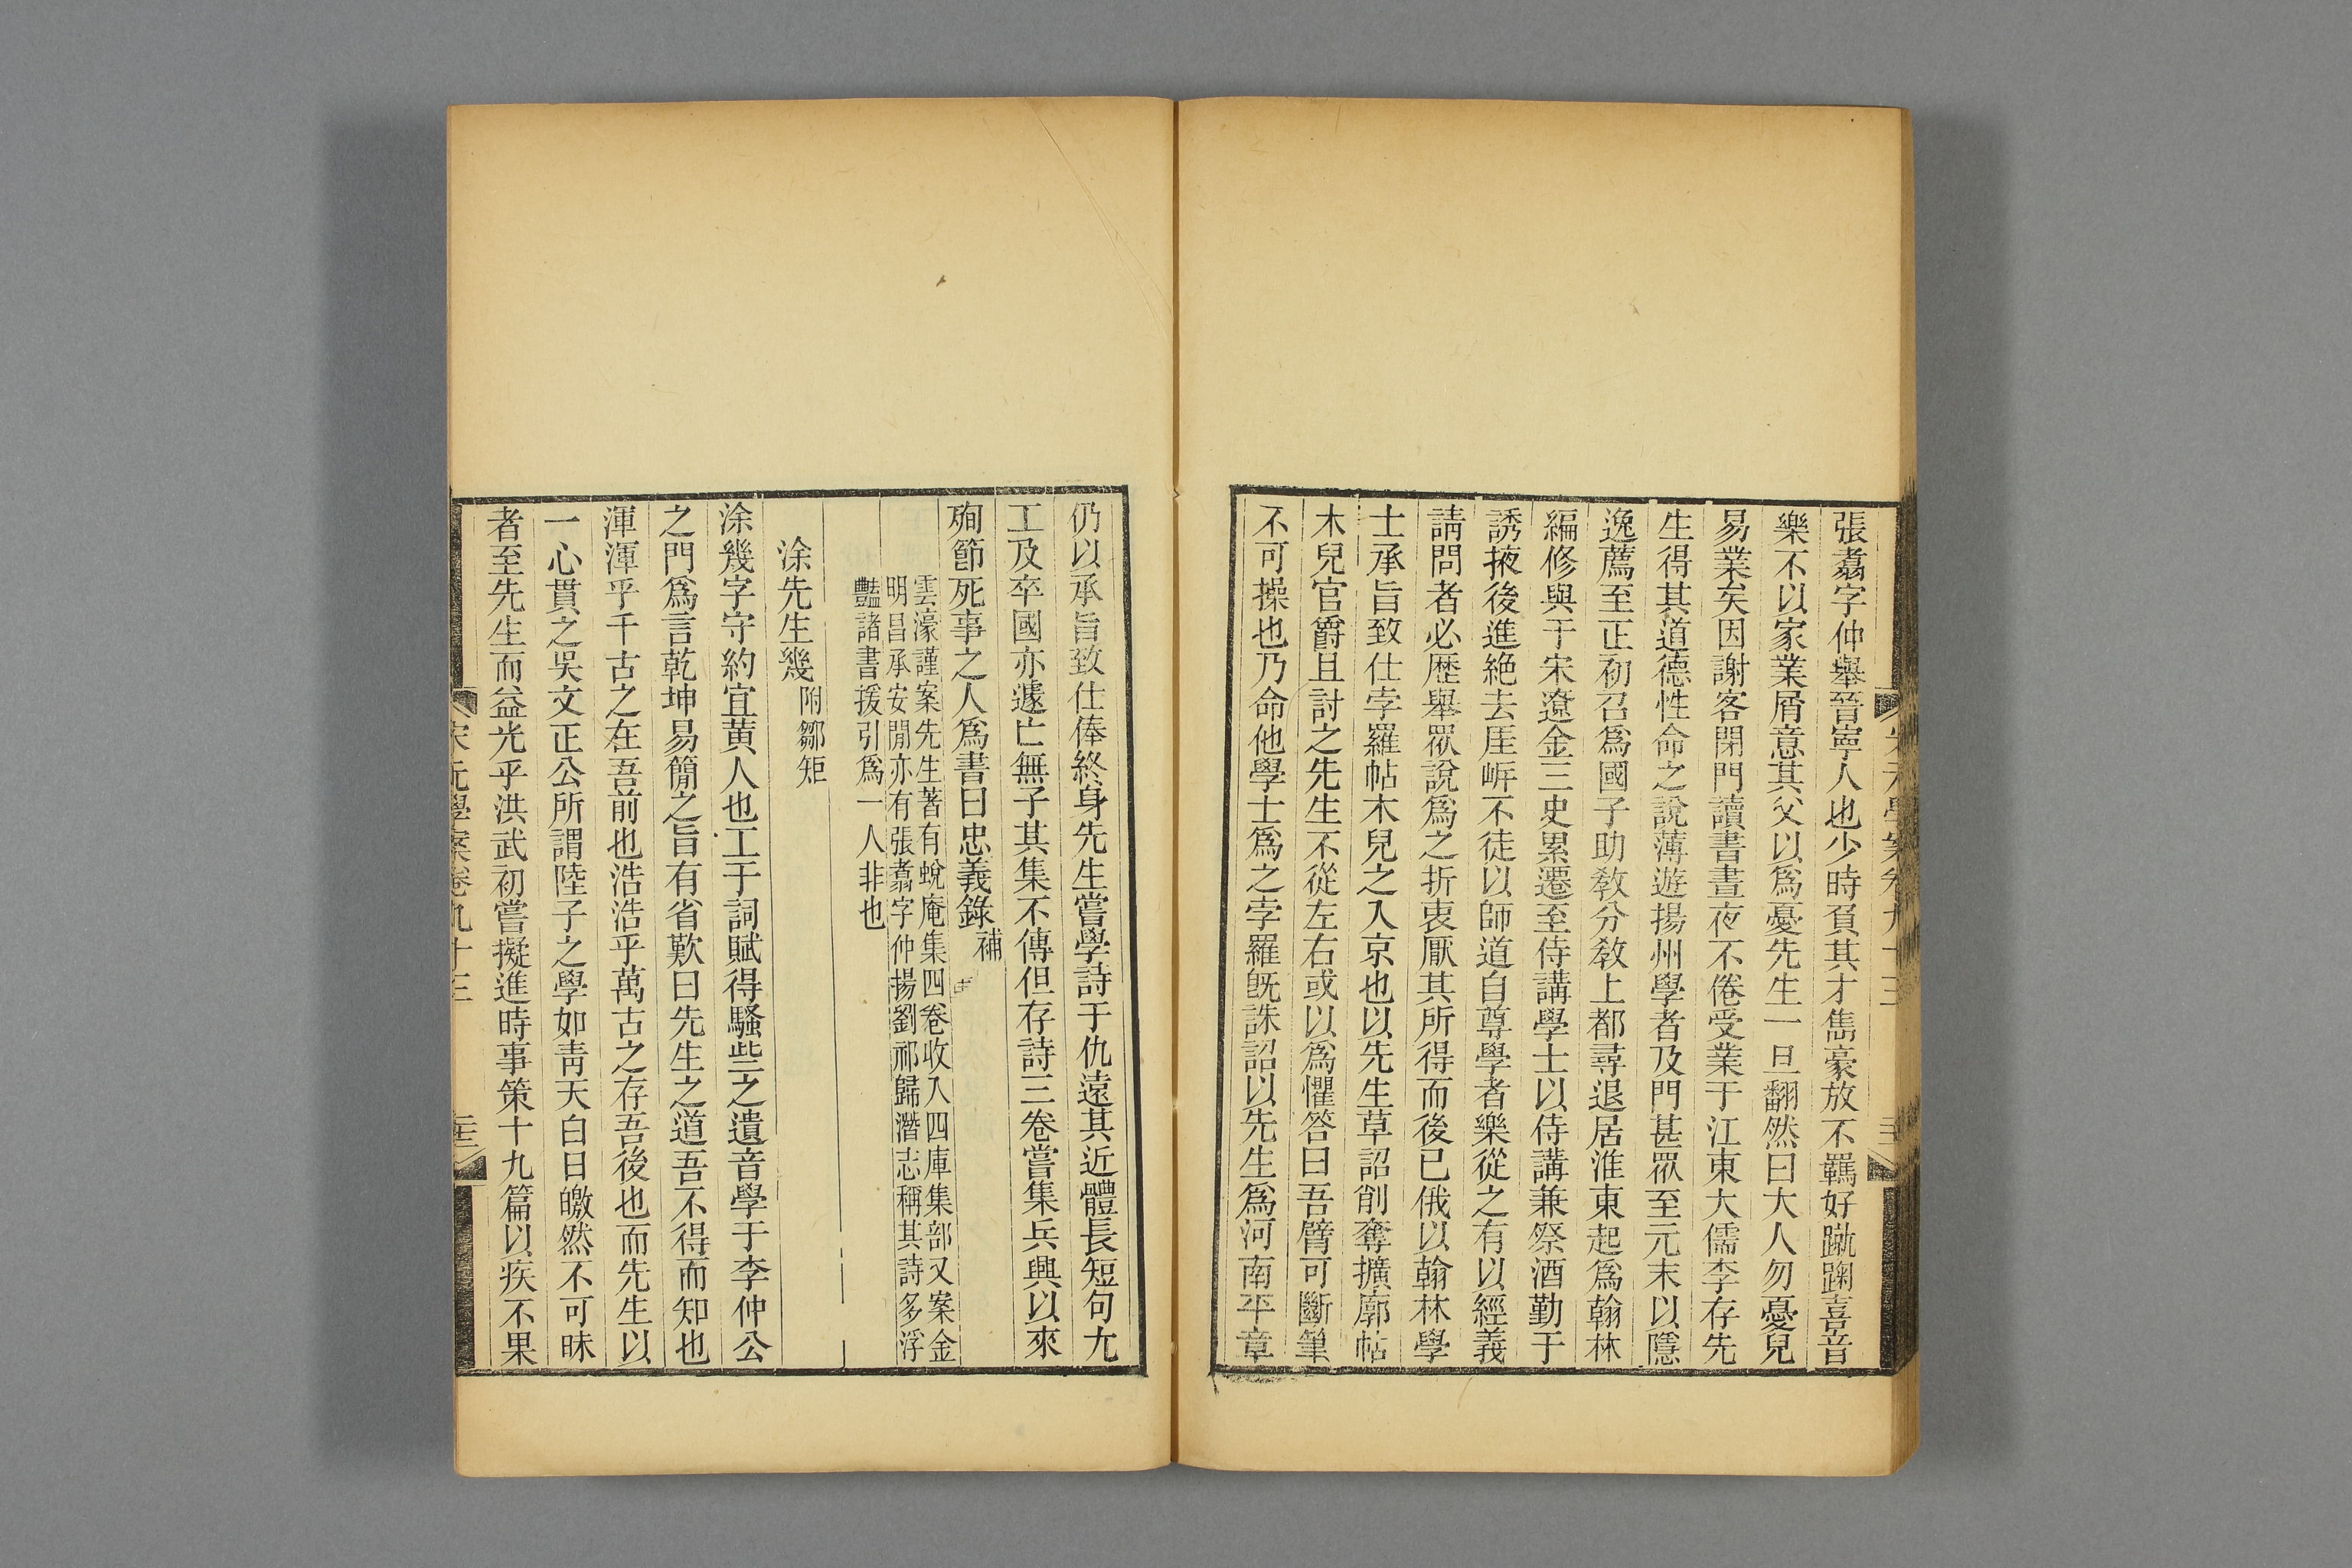 張翥字仲舉晉寧人也少時負其才雋豪放不羈好蹴踘喜音
樂不以家業屑意其父以爲憂先生一旦翻然曰大人勿憂兒
易業矣因謝客閉門讀書晝夜不倦受業于江東大儒李存先
生得其道德性命之說薄遊揚州學者及門甚眾至元末以隱
逸薦至正初召爲國子助敎分敎上都尋退居淮東起爲翰林
編修與于宋遼金三史累遷至侍講學士以侍講兼祭酒勤于
誘掖後進絶去厓岸不徒以師道自尊學者樂從之有以經義
請問者必歷舉眾說爲之折衷厭其所得而後已俄以翰林學
士承旨致仕孛羅帖木兒之入京也以先生草詔削奪擴廓帖
木兒官爵且討之先生不從左右或以爲懼答曰吾臂可斷筆
不可操也乃命他學士爲之孛羅旣誅詔以先生爲河南平章
仍以承旨致仕俸終身先生嘗學詩于仇遠其近體長短句尤
工及卒國亦遽亡無子其集不傳但存詩三卷嘗集兵興以來
殉節死事之人爲書曰忠義錄補
雲濠謹案先生著有蛻庵集四卷收入四庫集部又案金
明昌承安閒亦有張翥字仲揚劉祁歸潛志稱其詩多浮
豔諸書援引爲一人非也
涂先生幾附鄒矩
涂幾字守約宜黃人也工于詞賦得騷些之遺音學于李仲公
之門爲言乾坤易簡之旨有省歎曰先生之道吾不得而知也
渾渾乎千古之在吾前也浩浩乎萬古之存吾後也而先生以
一心貫之吳文正公所謂陸子之學如靑天白日皦然不可昧
者至先生而益光乎洪武初嘗擬進時事策十九篇以疾不果
宋元學案卷九十三